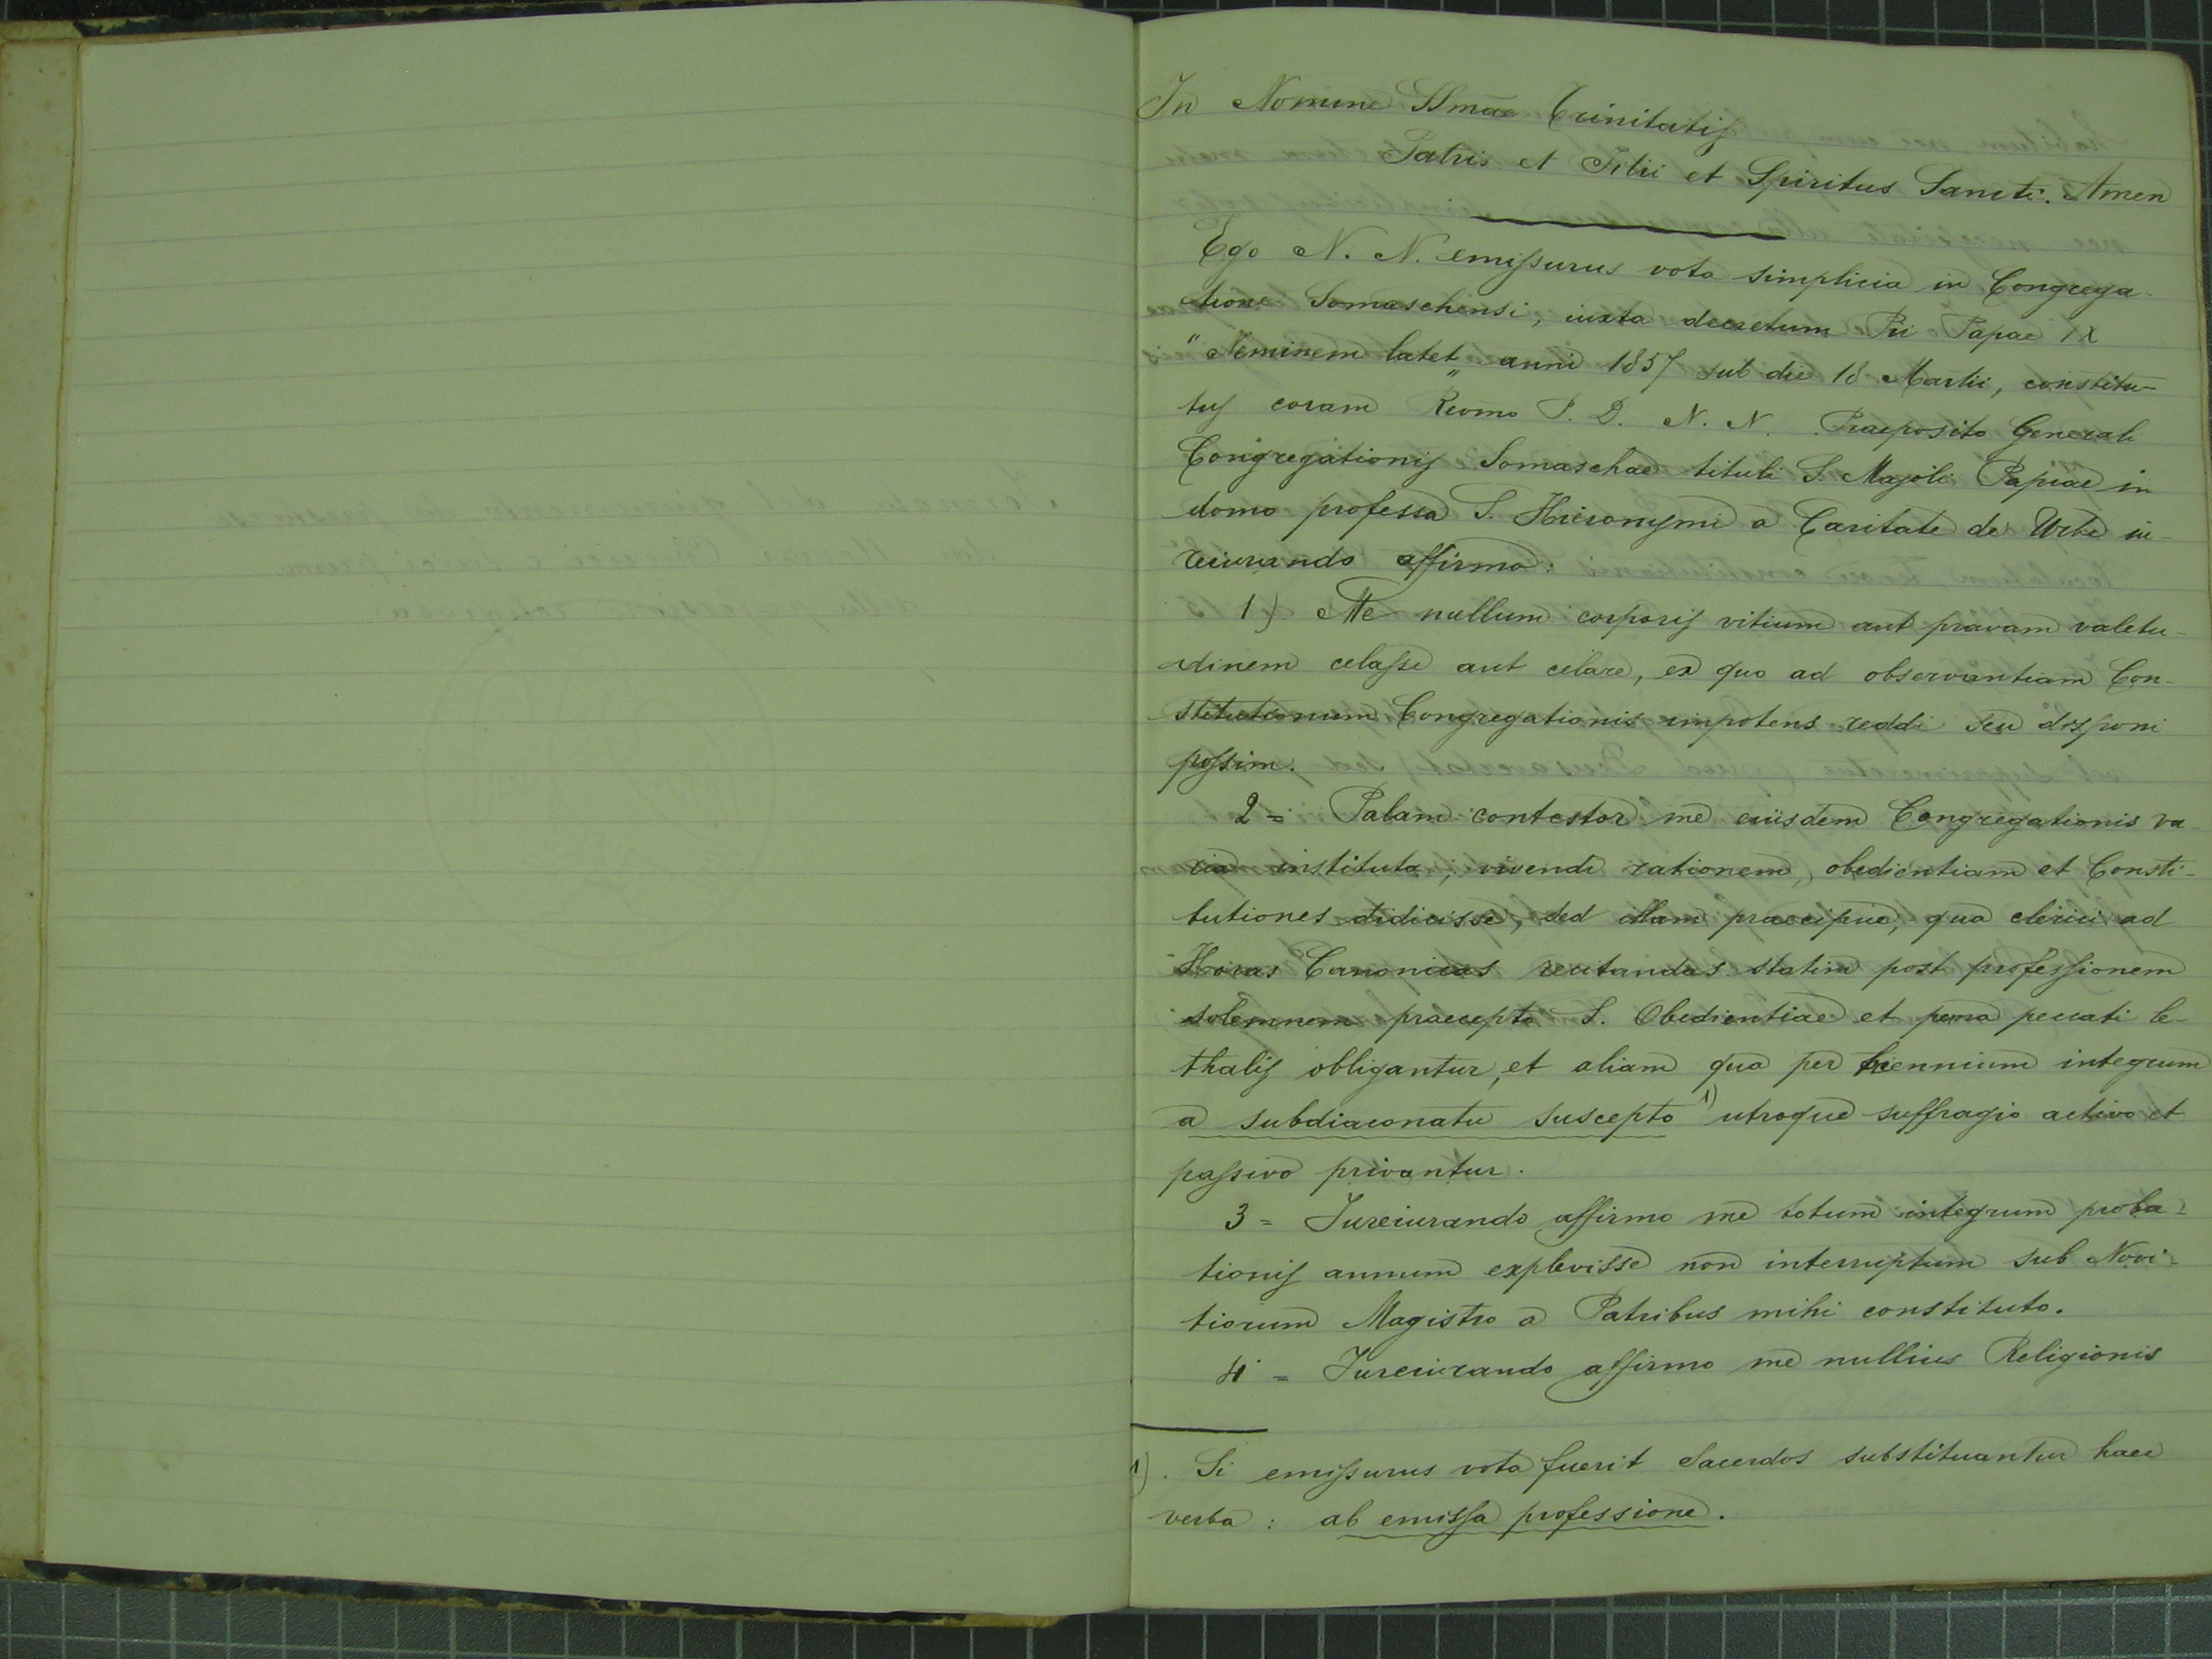 In Nomine SSmae Trinitatis
Patris et Filii et Spiritus Sancti. Amen
Ego N. N. emissurus vota simplicia in Congrega-
tione Somaschensi, iuxta decretum Pii Papae IX
"Neminem latet„ anni 1857 sub die 18 Martii, constitu-
tus coram Revmo P. D. N. N. Praeposito Generali
Congregationis Somaschae tituli S. Majoli Papiae in
domo professa S. Hieronymi a Caritate de Urbe iu-
reiurando affirmo:
1) Me nullum corporis vitium aut pravam valetu-
dinem celasse aut celare, ex quo ad observantiam Con-
stitutionum Congregationis impotens reddi seu disponi
possim.
2 = Palam contestor me eiusdem Congregationis va-
ria instituta, vivendi rationem, obedientiam et Consti-
tutiones didicisse, sed illam praecipue, qua clerici ad
Horas Canonicas recitandas statim post professionem
solemnem praecepto S. Obedientiae et pena peccati le-
thalis obligantur, et aliam qua per triennium integrum
a subdiaconatu suscepto 1) utroque suffragio activo et
passivo privantur.
3 = Iureiurando affirmo me totum integrum proba-
tionis annum explevisse non interruptum sub Novi-
tiorum Magistro a Patribus mihi constituto.
4 = Iureiurando affirmo me nullius Religionis
1). Si emissurus vota fuerit Sacerdos substituantur haec
verba: ab emissa professione.